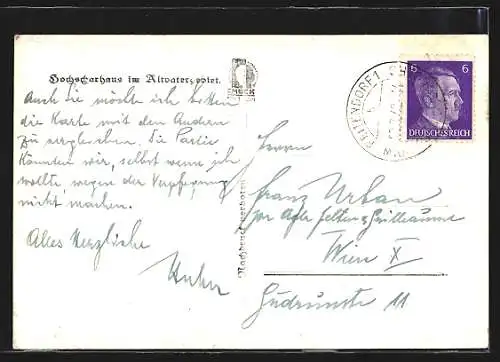 Hochscharhaus im Altvatergebiet.
Auch Sie möchte ich bitten
die Karte mit den Andern
zu vergleichen. Die Partie
könnten wir, selbst wenn ich
wollte, wegen der Verpflegung
nicht machen.
Alles Herzliche
Huber
Nachdruck verboten
REITENDORF 1
6 6
DEUTSCHES REICH
Herrn
Franz Urban
per Adr Felten & Guilleaume
Wien X
Gudrunstr 11